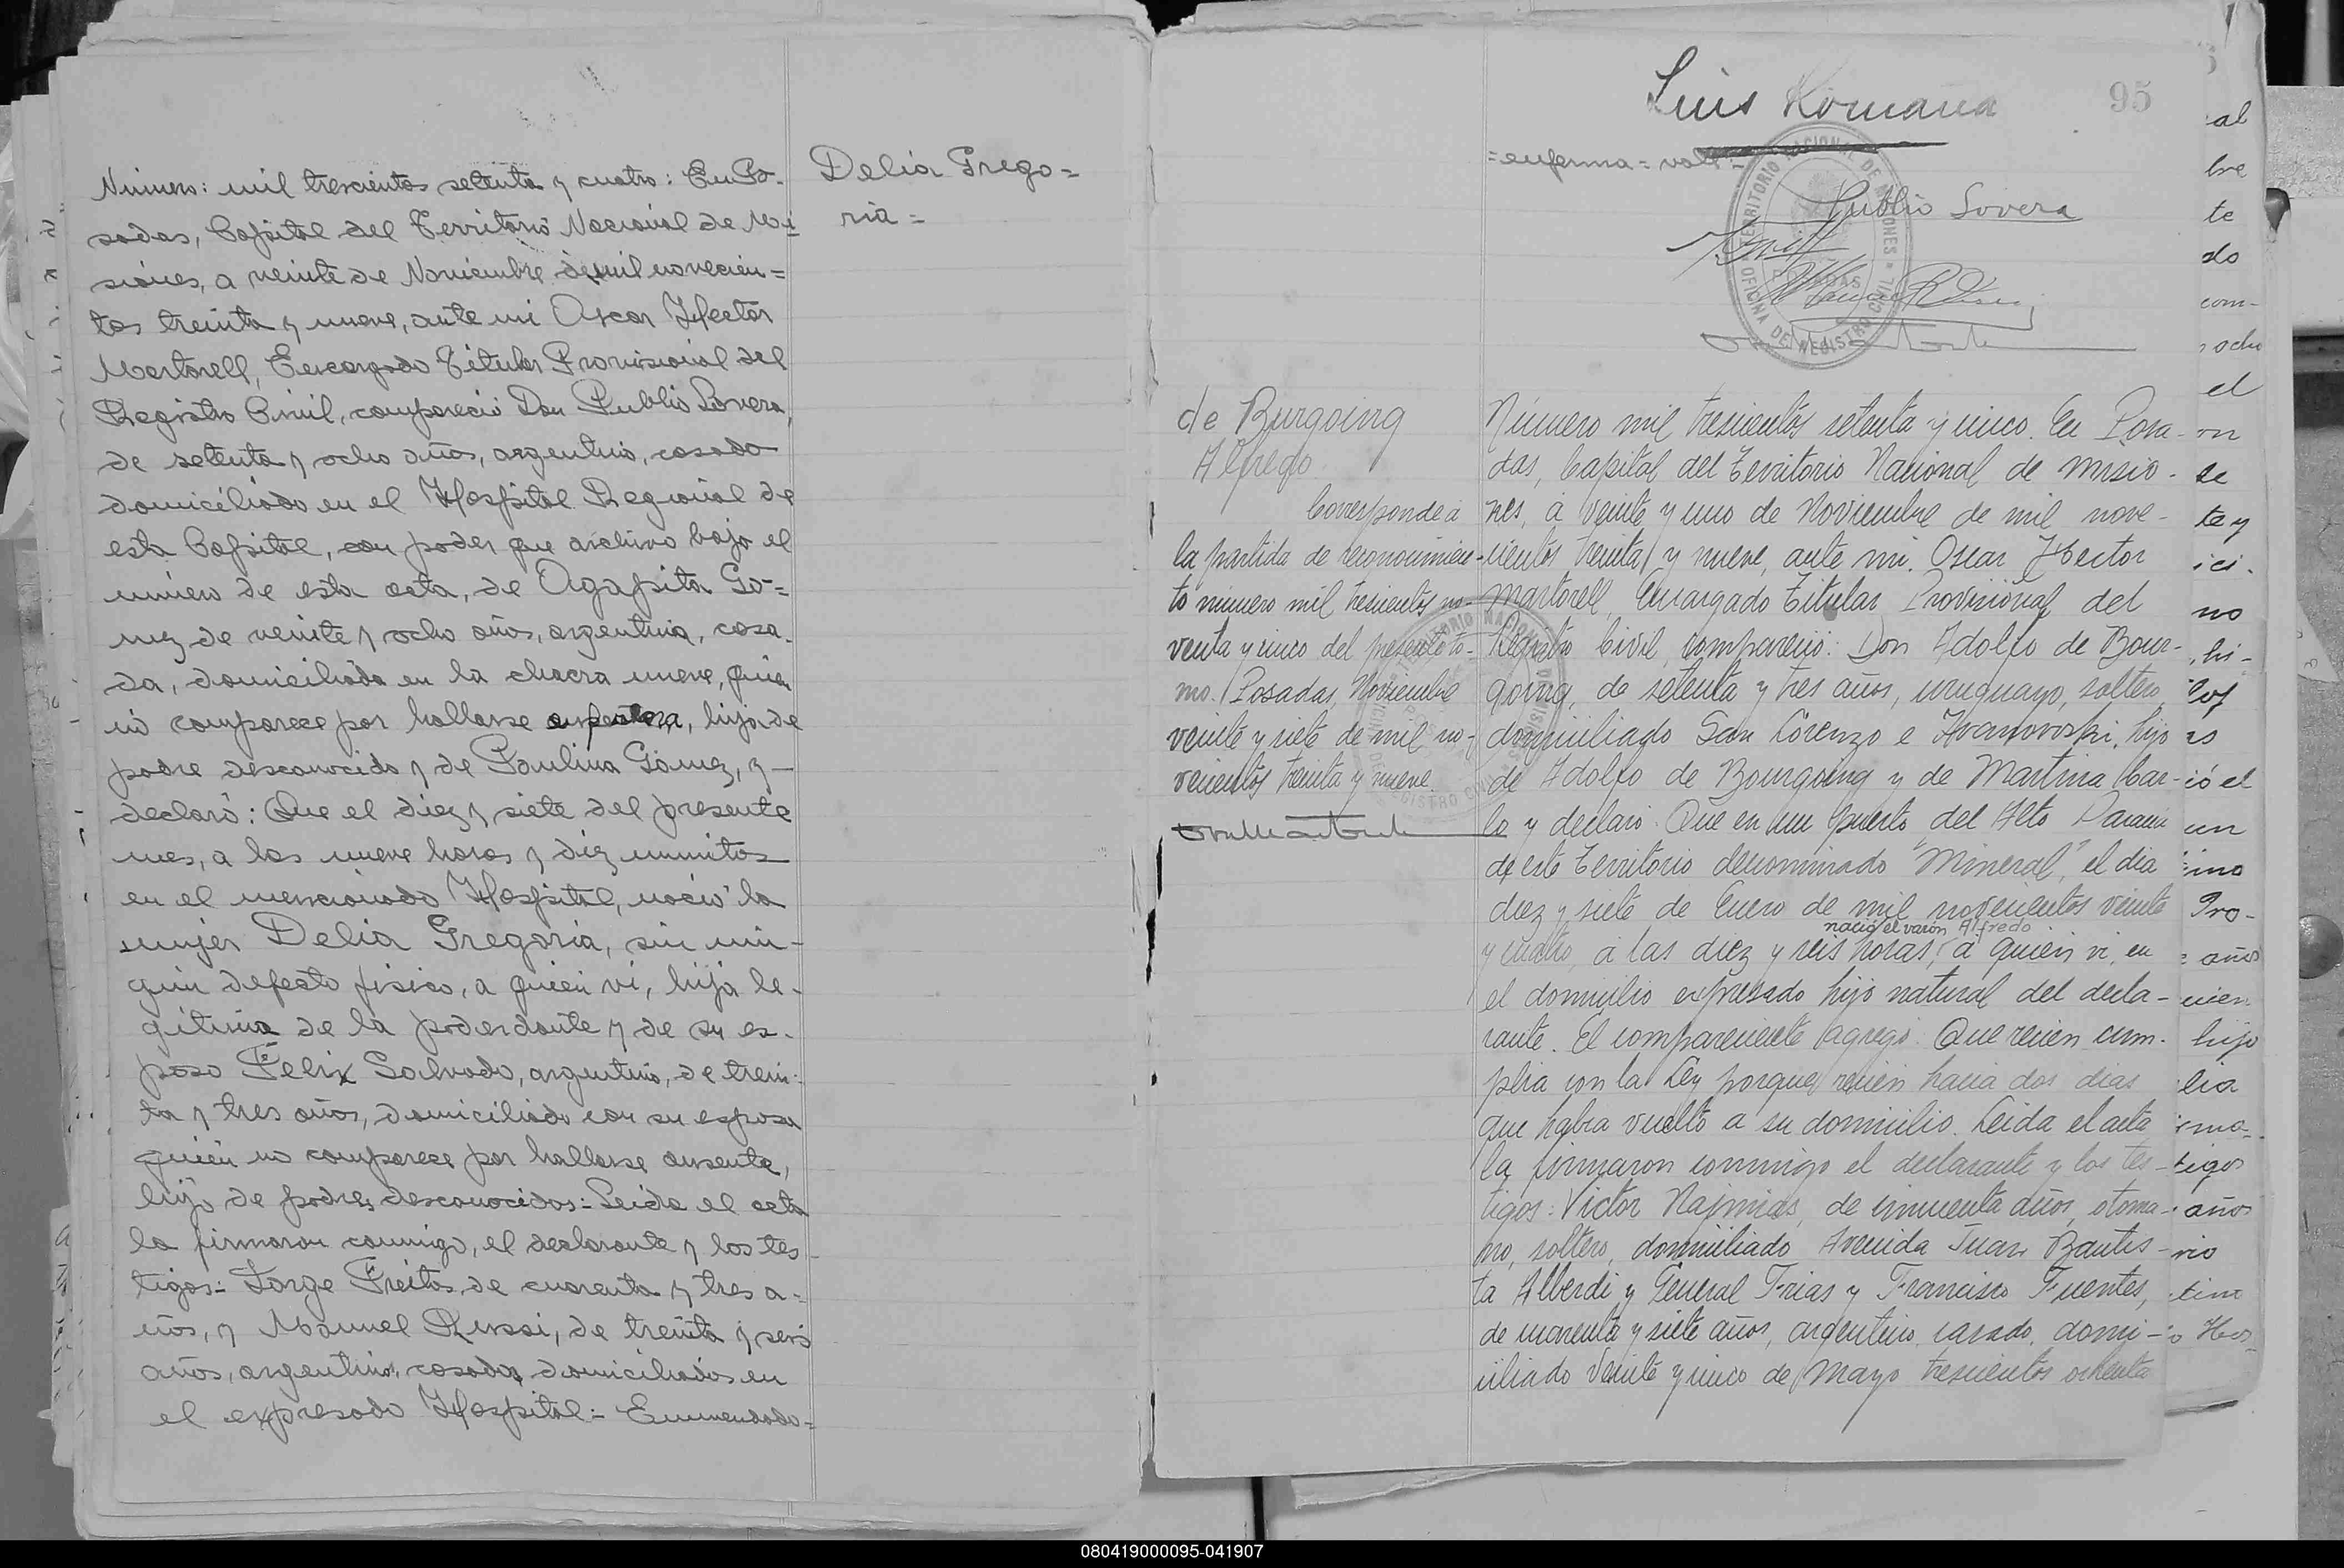 Número: mil trescientos setenta y cuatro: En Po-
sadas, Capital del Territorio Nacional de Mi-
siones, a veinte de Noviembre de mil novecien=
tos treinta y nueve, ante mi Oscar Hector
Martorell, Encargado Titular Provisional del
Registro Civil, compareció Don Publio Lovera,
de setenta y ocho años, argentino, casado
domiciliado en el Hospital Regional de
esta Capital, con poder que archivo bajo el
número de esta acta, de Agapita Gó=
mez de veinte y ocho años, argentina, casa-
da, domiciliada en la chacra nueve, quien
no comparece por hallarse enferma, hija de
padre desconocido y de Paulina Gómez, y
declaró: Que el diez y siete del presente
mes, a las nueve horas y diez minutos
en el mencionado Hospital, nació la
mujer Delia Gregoria, sin nin-
gún defecto fisico, a quien vi, hija le-
gitima de la poderdante y de su es-
poso Felix Salvado, argentino, de trein-
ta y tres años, domiciliado con su esposa
quién no comparece por hallarse ausente,
hijo de padres desconocidos: Leida el acta
la firmaron conmigo, el declarante y los tes-
tigos: Jorge Freitas de cuarenta y tres a-
ños, y Manuel Russi, de treinta y seis
años, argentinos, casados domiciliados en
el expresado Hospital: Enmendado=
Delia Grego=
ria=
95
Luis Romana
=enferma=vale=
Publio Lovera
TERRITORIO NACIONAL DE MISIONES
OFICINA DE REGISTRO CIVIL
POSADAS
de Burgoing
Alfredo
Corresponde a
la partida de reconocimien-
to número mil trescientos no-
venta y cinco del presente to-
mo. Posadas, Noviembre
veinte y siete de mil no-
vecientos treinta y nueve.
Número mil trescientos setenta y cinco. En Posa-
das, Capital del Territorio Nacional de Misio-
nes, a veinte y uno de Noviembre de mil nove-
cientos treinta y nueve, ante mi. Oscar Hector
Martorell, Encargado Titular Provisional del
Registro Civil, compareció: Don Adolfo de Bour-
going, de setenta y tres años, uruguayo, soltero,
domiciliado San Lorenzo e Ivanovoski, hijo
de Adolfo de Bourgoing y de Martina Car-
lo y declaró: Que en un puerto del Alto Paraná
de este Territorio denominado "Mineral", el dia
diez y siete de Enero de mil novecientos veinte
nació el varon Alfredo
y cuatro, a las diez y seis horas, a quien vi, en
el domicilio expresado hijo natural del decla-
rante. El compareciente agregó: Que recien cum-
plia con la Ley porque recien hacia dos dias
que habia vuelto a su domicilio. Leida el acta
la firmaron conmigo el declarante y los tes-
tigos: Victor Najmias, de cincuenta años, otoma-
no, soltero, domiciliado Avenida Juan Bautis-
ta Alberdi y General Frias y Francisco Fuentes,
de cuarenta y siete años, argentino, casado, domi-
ciliado Veinte y cinco de Mayo trescientos ochenta
al
bre
te
do
com-
ocho
el
on
se
te y
ici-
no
hi-
los
as
ió el
un
ino
Pro-
años
uien
hijo
lia
ima-
tigos
años
rio
tino
080419000095-041907